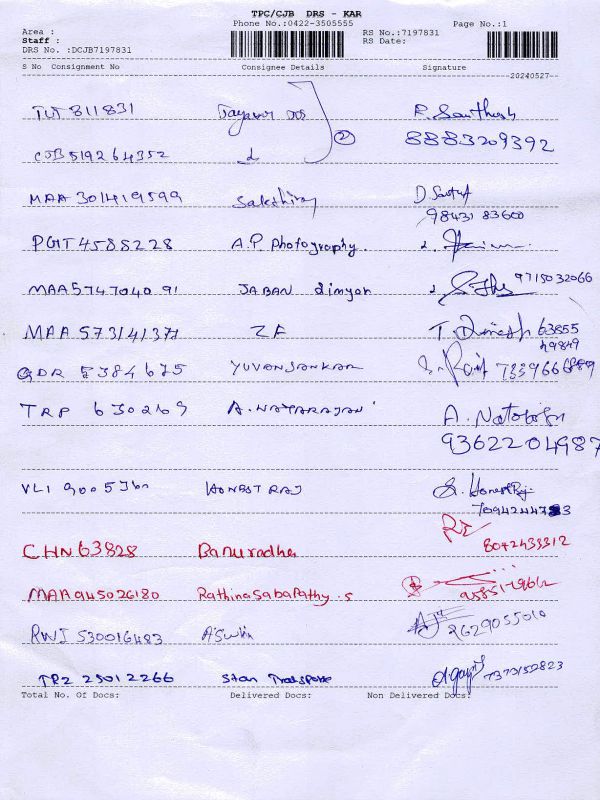 TPC/CJB DRS - KAR
Phone No.:0422-3505555 Page No.:1
Area :
Staff : RS No.:7197831
DRS No. :DCJB7197831 RS Date:
S No Consignment No Consignee Details Signature
20240527
TUT 811831 R. Santhosh
② 8883209392
CJB519264352
MAA 301419599 Sakthiraj
98431 83600
PGT 4585228 A.P. Photography.
MAA574704091 JABAN 9715032066
MAA 573141377 ZF T. Dinesh 63855
49849
GDR 5384675 YUVANSANKAR 7339666889
TRP 630269 A. NATARAJAN A. Natarajan
9362204987
VLI 9005360 HONEST RAJ S. Honest Raj
CHN 63828 Banuradha 8072433312
MAA945026180 Rathinasabapathy.S
RWJ 530016483 Aswin 9629055010
TRZ 25012266 Star Transport 7373152823
Total No. Of Docs: Delivered Docs: Non Delivered Docs: